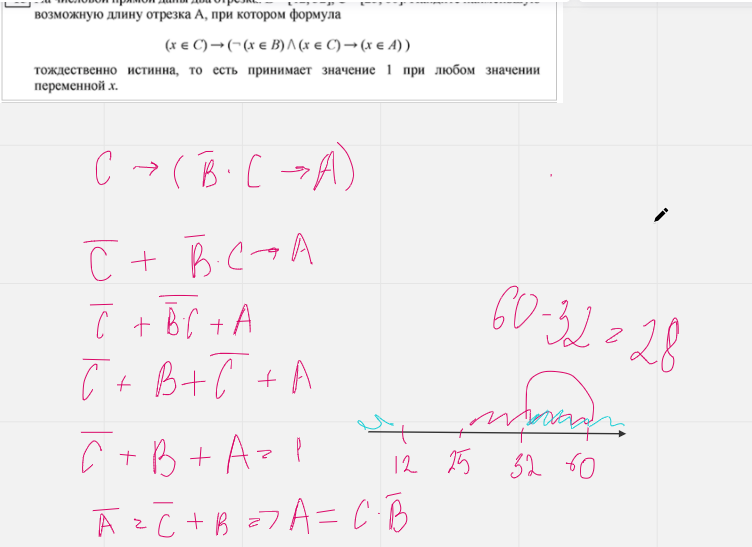 возможную длину отрезка A, при котором формула
(x ∈ C) → (¬ (x ∈ B) ∧ (x ∈ C) → (x ∈ A) )
тождественно истинна, то есть принимает значение 1 при любом значении
переменной x.
C → ( B̅ · C → A )
C̅ + B̅ · C → A
C̅ + \overline{B̅ C} + A
C̅ + B + C̅ + A
C̅ + B + A = 1
A̅ = C̅ + B => A = C · B̅
60 - 32 = 28
12 25 32 60